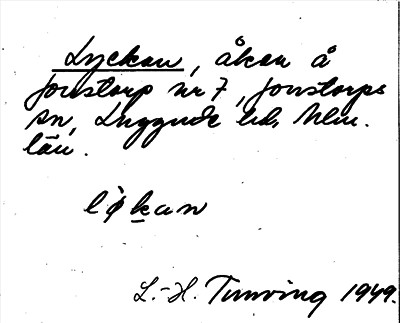 Lyckan, åkan å
Jonstorp nr 7, Jonstorps
sn, Luggude hd, Mlm.
län.
lø̀kan
L.-H. Tunving 1949.